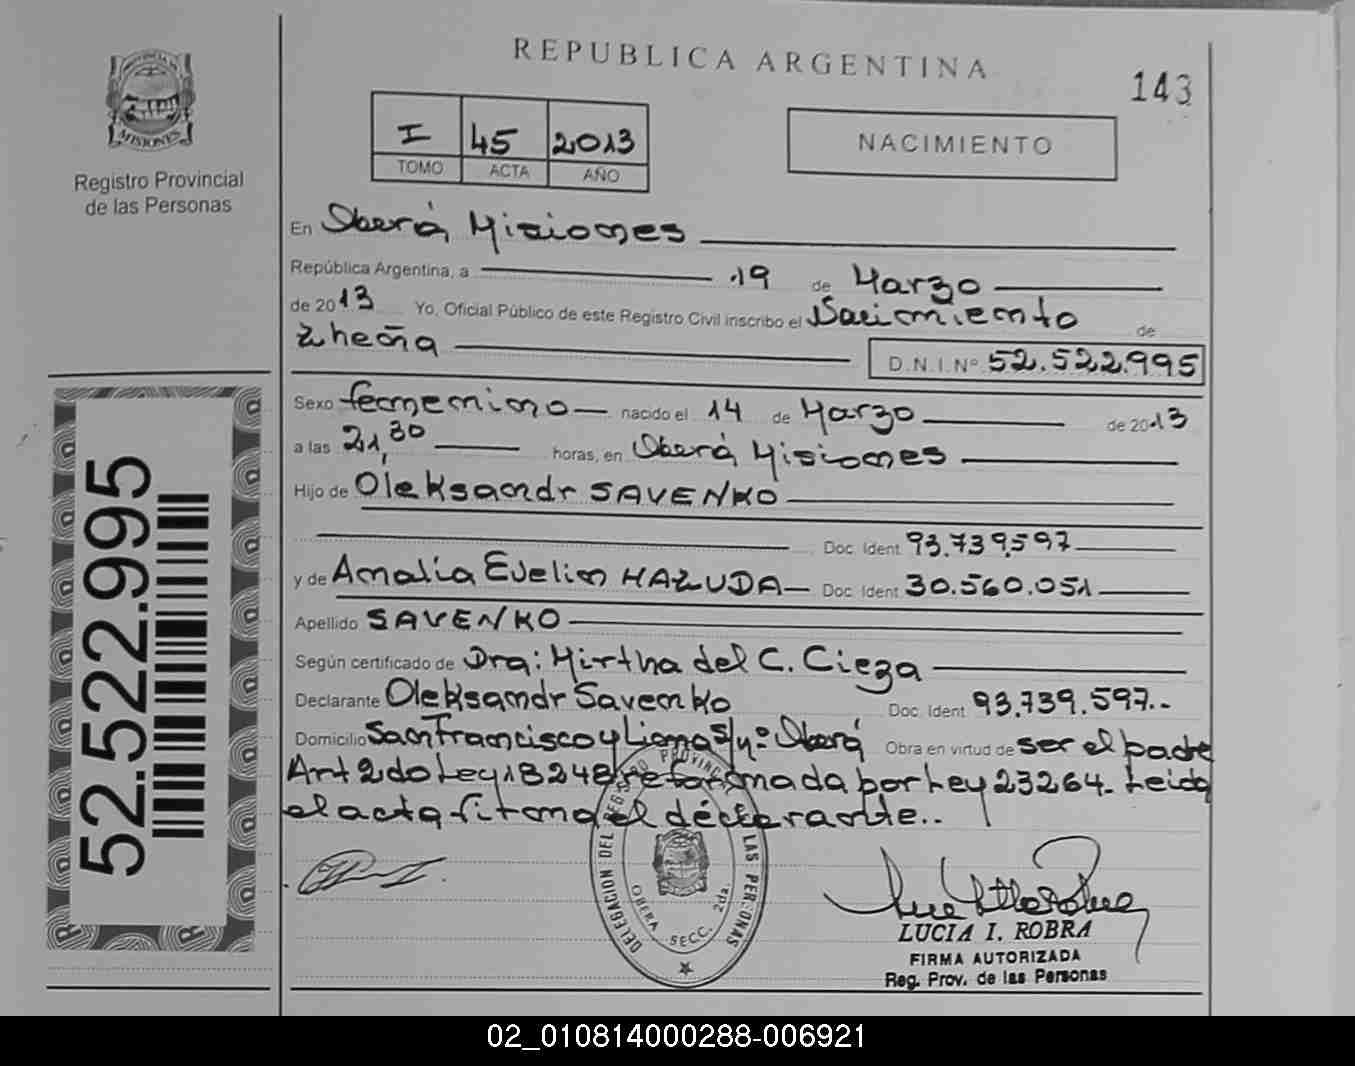 REPUBLICA ARGENTINA
143
MISIONES
Registro Provincial
de las Personas
I 45 2013
TOMO ACTA AÑO
NACIMIENTO
En Oberá Misiones
República Argentina, a 19 de Marzo
de 2013 Yo, Oficial Público de este Registro Civil inscribo el Nacimiento de
Zheña D.N.I. Nº 52.522.995
Sexo femenino nacido el 14 de Marzo de 2013
a las 21,30 horas, en Oberá Misiones
Hijo de Oleksandr SAVENKO
Doc. Ident 93.739.597
y de Amalia Evelin HAZUDA Doc. Ident 30.560.051
Apellido SAVENKO
Según certificado de Dra: Mirtha del C. Cieza
Declarante Oleksandr Savenko Doc. Ident 93.739.597.-
Domicilio San Francisco y Liona S/nº Oberá Obra en virtud de ser el padre
Art 2do Ley 18248 reformada por Ley 23264. Leida
el acta firma el declarante..
52.522.995
DELEGACION DEL REGISTRO PROVINCIAL LAS PERSONAS
OBERA SECC. 2da.
LUCIA I. ROBRA
FIRMA AUTORIZADA
Reg. Prov. de las Personas
02_010814000288-006921